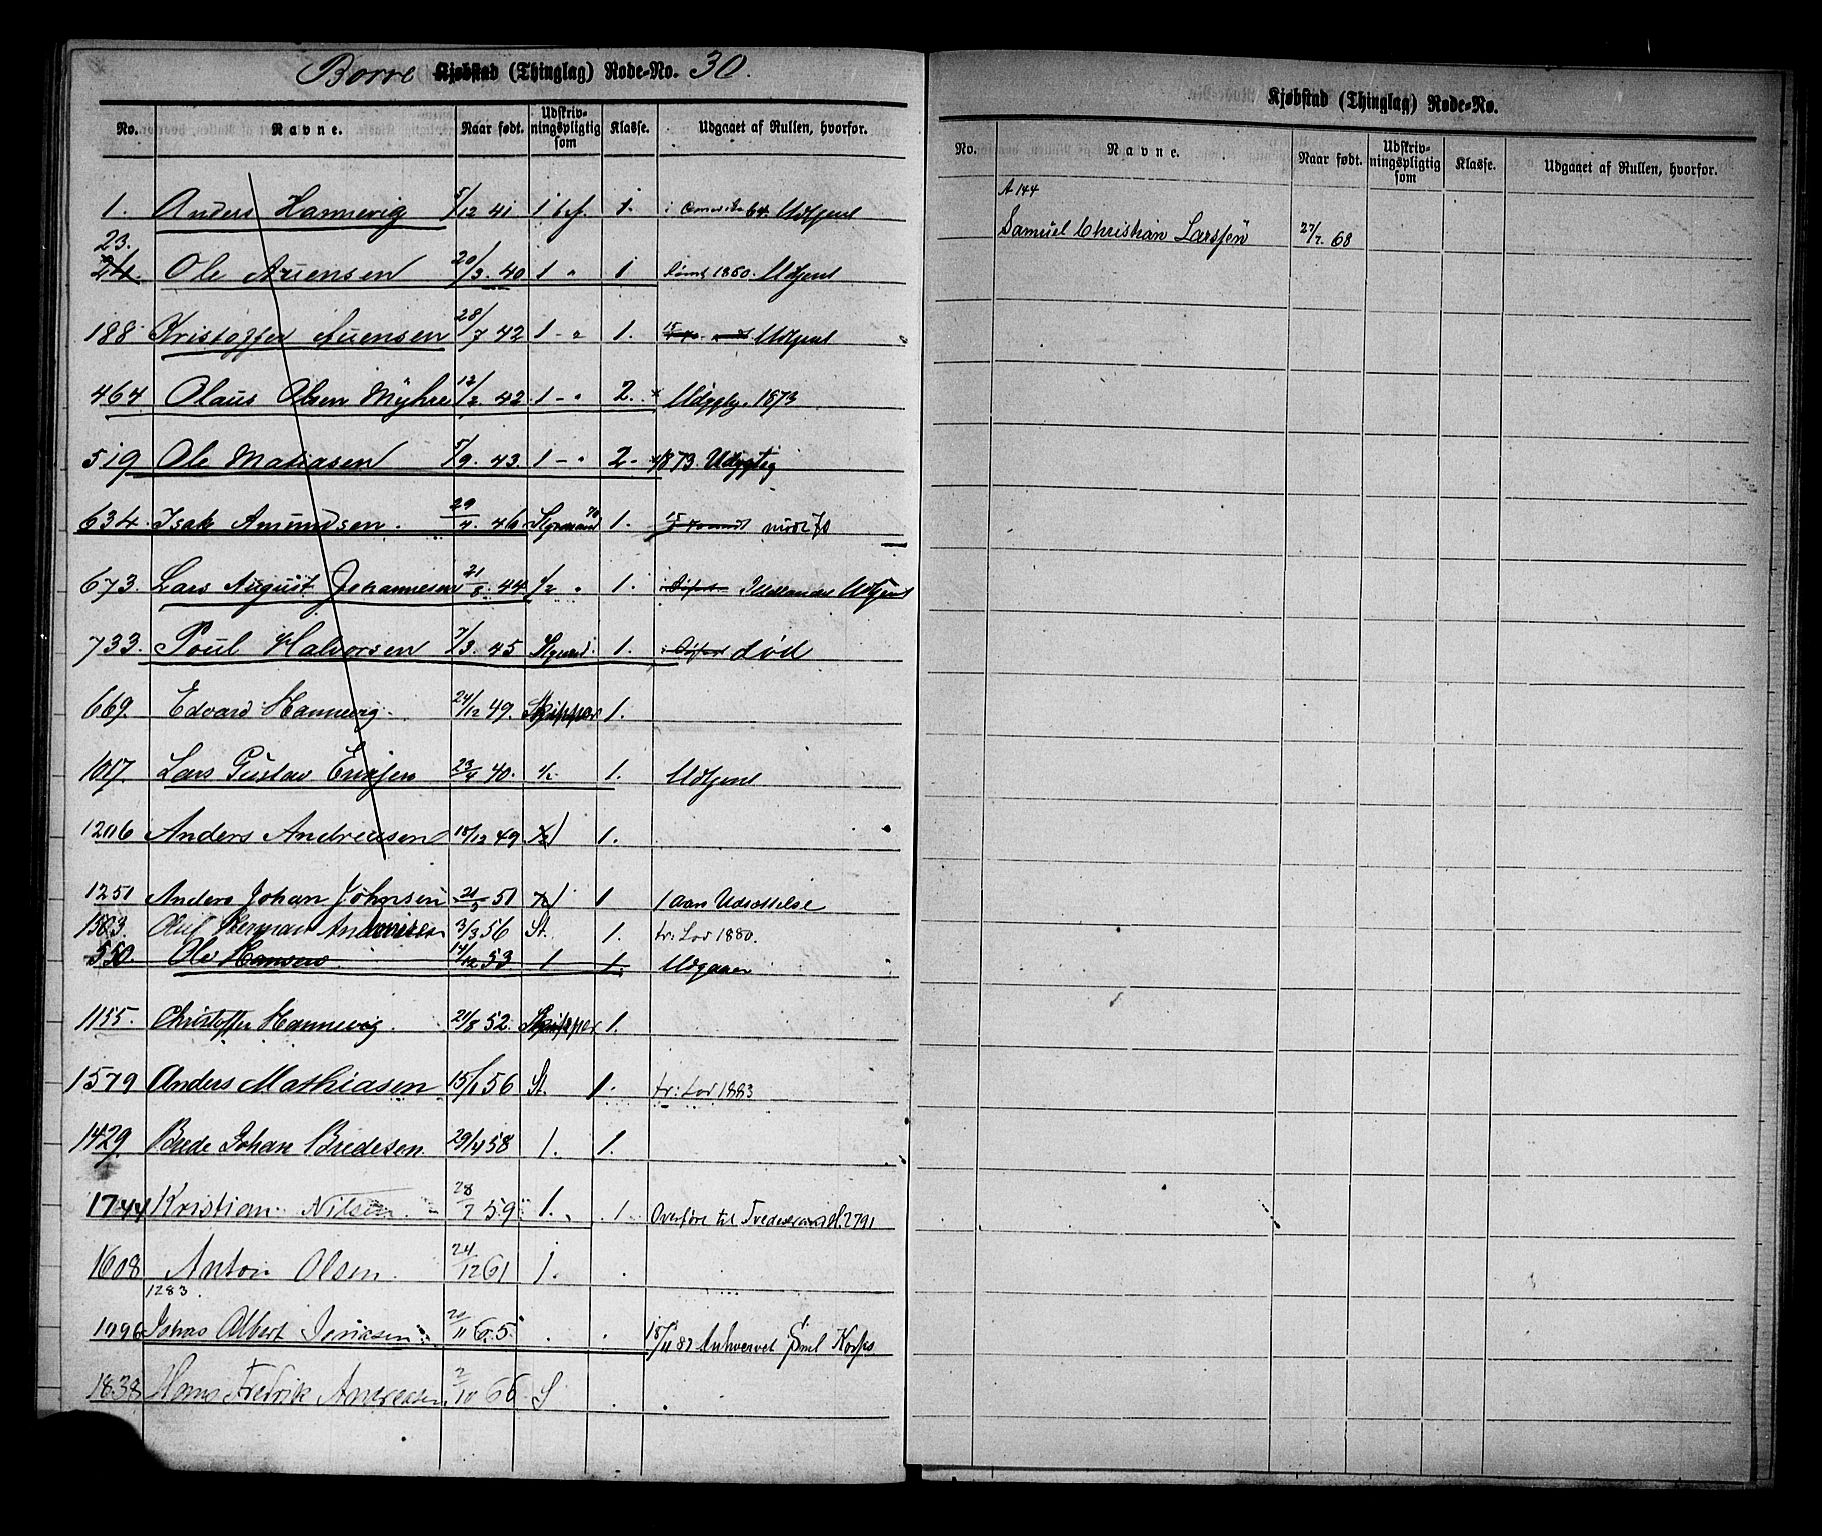 Borre Kjøbstad (Thinglag) Rode-No. 30.
No. Navne. Naar født. Udskriv-ningspligtig som Klasse. Udgaaet af Rullen, hvorfor.
1. Anders Hannevig 5/12 41 1 bef. 1. i 64 Udtjent
23.
24. Ole Auensen 20/3. 40 1 " 1 1860. Udtjent
188 Kristoffer Auensen 28/7 42 1 - " 1. Udtjent
464 Olaus Olsen Myhre 12/2. 42 1 - " 2. 1873
519 Ole Matiasen 5/9. 43. 1 - " 2 - 1873. Udygtig
634. Isak Amundsen. 29/4. 46 Styrmand 70 1.
673. Lars August Johannesen 21/8. 44 1/2 " 1. Udtjent
733. Poul Halvorsen 7/3. 45 Styrmd. 1. død
669. Edvard Hannevig 24/12 49. Skipper 1.
1017. Lars Gustav 23/9 40. 1/2 1. Udtjent
1206 Anders Andreasen 18/12 49. 1 1.
1251 Anders Johan Johnsen 21/5 51 1 1 1 Aars Udsættelse
1583. Oluf Herman 3/3 56 St. 1. tr: Lod 1880.
550. Ole Hansen 14/12 53 1 1. Udgaaer
1155. Christoffer Hannevig. 21/8 52. Skipper 1.
1579 Anders Mathiasen 15/1 56 St. 1. tr: Lod 1883
1429. Brede Johan Bredesen. 29/4 58 1. 1.
1744 Kristian Nilsen. 28/7 59. 1. 1. Overført til 2791
1608 Anton Olsen. 24/12 61 1.
1283.
1096 Johas Albert 20/11 65. 18/11 87 Korps
1838 Hans Fredrik Andreasen 2/10 66 S
Kjøbstad (Thinglag) Rode-No.
No. Navne. Naar født. Udskriv-ningspligtig som Klasse. Udgaaet af Rullen, hvorfor.
A 144
Samuel Christian Larssen 27/7. 68